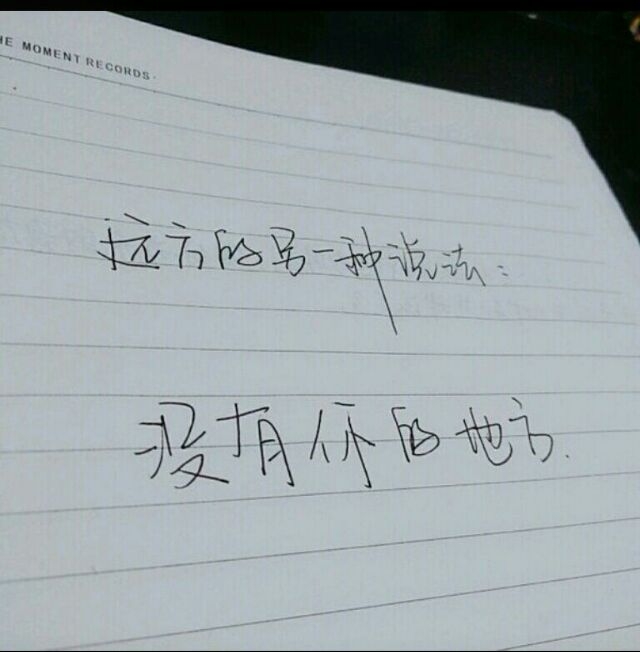 HE MOMENT RECORDS
远方的另一种说法：
没有你的地方.